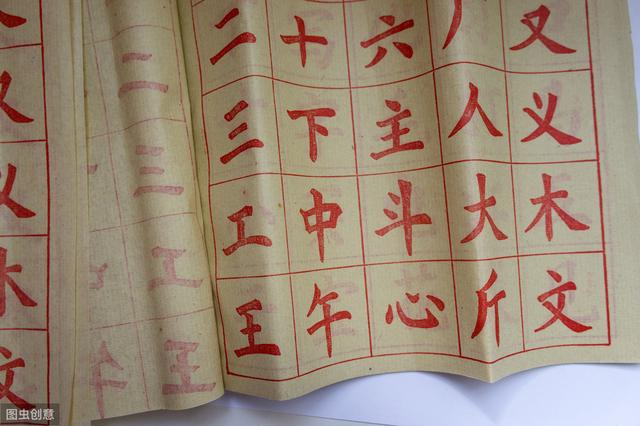 二 十 六 又
三 下 主 人 义
工 中 斗 大 木
王 午 心 斤 文
二
三
工
王
图虫创意